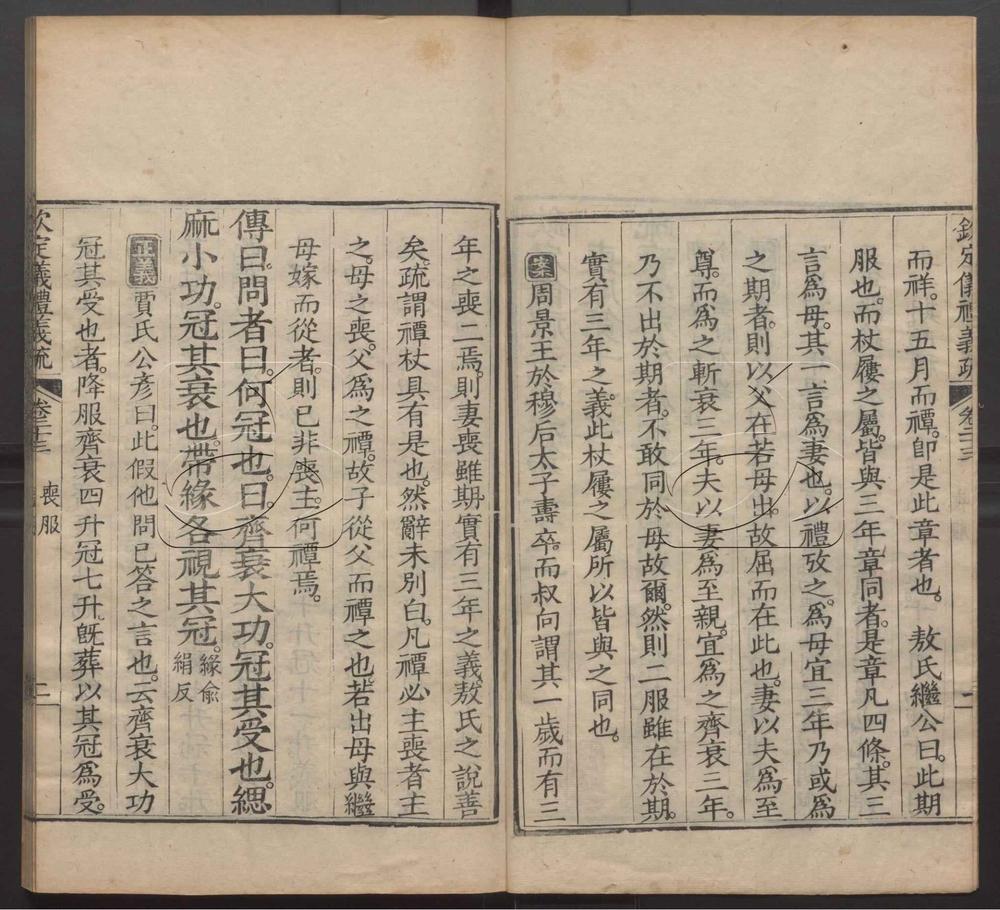 欽定儀禮義疏 卷二十三
而祥。十五月而禫。卽是此章者也。 敖氏繼公曰。此期
服也。而杖屨之屬。皆與三年章同者。是章凡四條。其三
言爲母。其一言爲妻也。以禮攷之。爲母宜三年乃或爲
之期者。則以父在若母出。故屈而在此也。妻以夫爲至
尊。而爲之斬衰三年。夫以妻爲至親。宜爲之齊衰三年。
乃不出於期者。不敢同於母故爾。然則二服雖在於期。
實有三年之義。此杖屨之屬所以皆與之同也。
案周景王於穆后太子壽卒。而叔向謂其一歲而有三
年之喪二焉。則妻喪雖期實有三年之義。敖氏之說善
矣。疏謂禫杖具有是也。然辭未別白。凡禫必主喪者主
之。母之喪。父爲之禫。故子從父而禫之也。若出母與繼
母嫁而從者。則已非喪主。何禫焉。
傳曰。問者曰。何冠也。曰。齊衰大功。冠其受也。緦
麻小功。冠其衰也。帶緣各視其冠。緣俞絹反
正義賈氏公彥曰。此假他問已答之言也。云齊衰大功
冠其受也者。降服齊衰四升冠七升。旣葬以其冠爲受。
欽定儀禮義疏 卷二十三 喪服 二